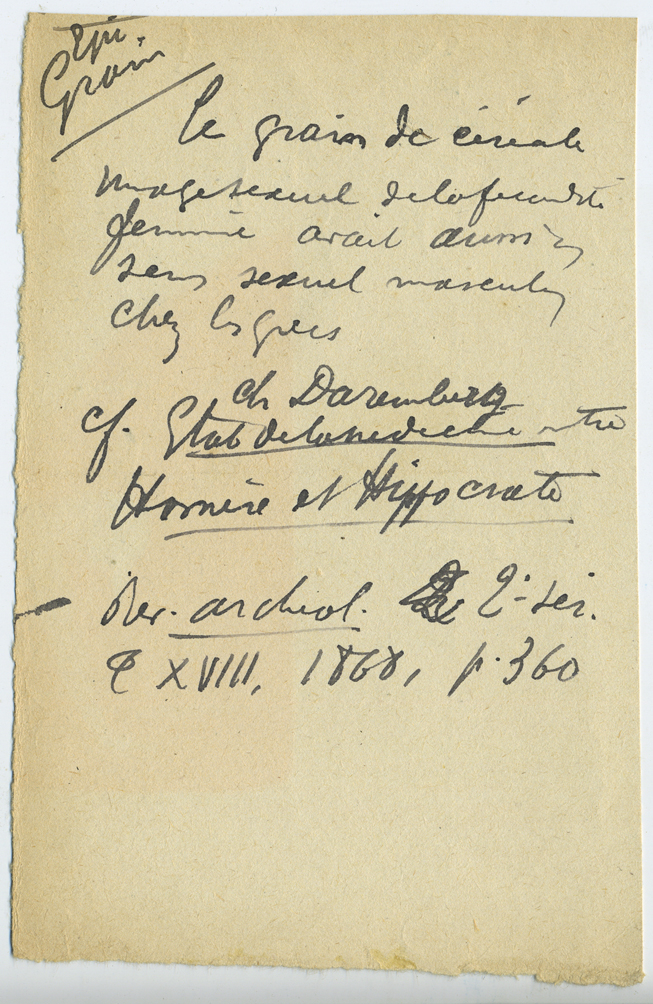 Epi.
Grain
le grain de céréale
image sexuel de la fécondité
féminine avait aussi un
sens sexuel masculin
chez les grecs
cf. Ch Daremberg
Etat de la médecine entre
Homère et Hippocrate
Rev. archéol. 2e sér.
t XVIII, 1868, p. 360